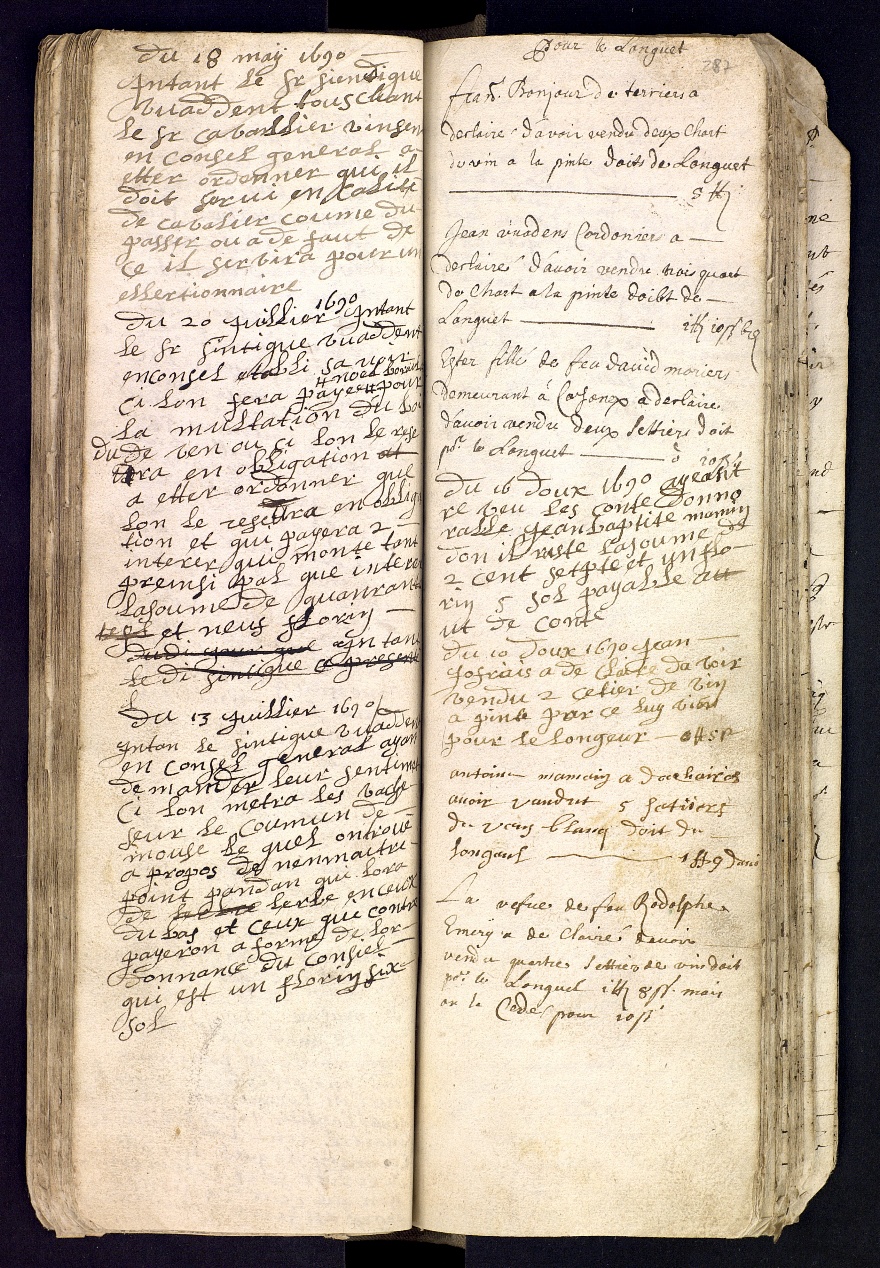 du 18 maÿ 1690
qntant le sr siendique
vuaddent touschant
le sr cavallier vinsen
en consel general a
etter ordenner qui il
doit servi en caliti
de cavalier coume du
passer ou a de faut de
ce il servira pour un
ellertionnaire
du 20 juillier 1690 qntant
le sr sintique vuaddent
enconsel etabli sa voir
ci lon sera payer pour
la multation du boi
du de ven ou ci lon le rese
vra en obligation et
a etter ordonner que
lon le resevra en oblig
tion et qui payera 2
interer qui monte tant
preinsi pal que intere
lasoume de quanrant
et neus florin
dudi jour que qntan
le di sintique a presente
du 13 juillier 1690
qntan le sintique vuadden
en consel general ayan
demander leur sentiment
ci lon metra les vache
seur le coumun de
mouse le quel ontrouve
a propos de nenmaitre
point pandan qui lora
de lerbe enceux
du bas et ceux qui contre
payeron a forme de lor
donnance du Consiel
qui est un florin six
sol
Pour le Longuet
287
fran. Bonjour de terriers a
declaire d'avoir vendu deux Chart
du vin a la pinte doits de Longuet
Jean vuadens Cordonier a
declaire d'avoir vendu trois quart
de Chart a la pinte doibt de
Longuet
Ester fille de feu david moriers
demeurant à a declaire
d'avoir vendu deux settiers doit
pr. le Longuet
du 16 doux 1690 ayeant
re veu les conte donno
ralle jean baptite mamin
don il reste lasoume de
2 cent setpte et un flo
rin 5 sol payable au
ut de conte
du 10 doux 1690 Jean
Jofrais a de claire da voir
vendu 2 cetier de vin
a pinte par ce luy
pour le longeur
antoine mamin a
auoir vandut 5 setiers
du vain blanq doit du
longaul
La vefue de feu Rodolphe
Emery a de Claire davoir
vendu quattre settier de vin doit
pr. le Longuel mais
on le Cede pour